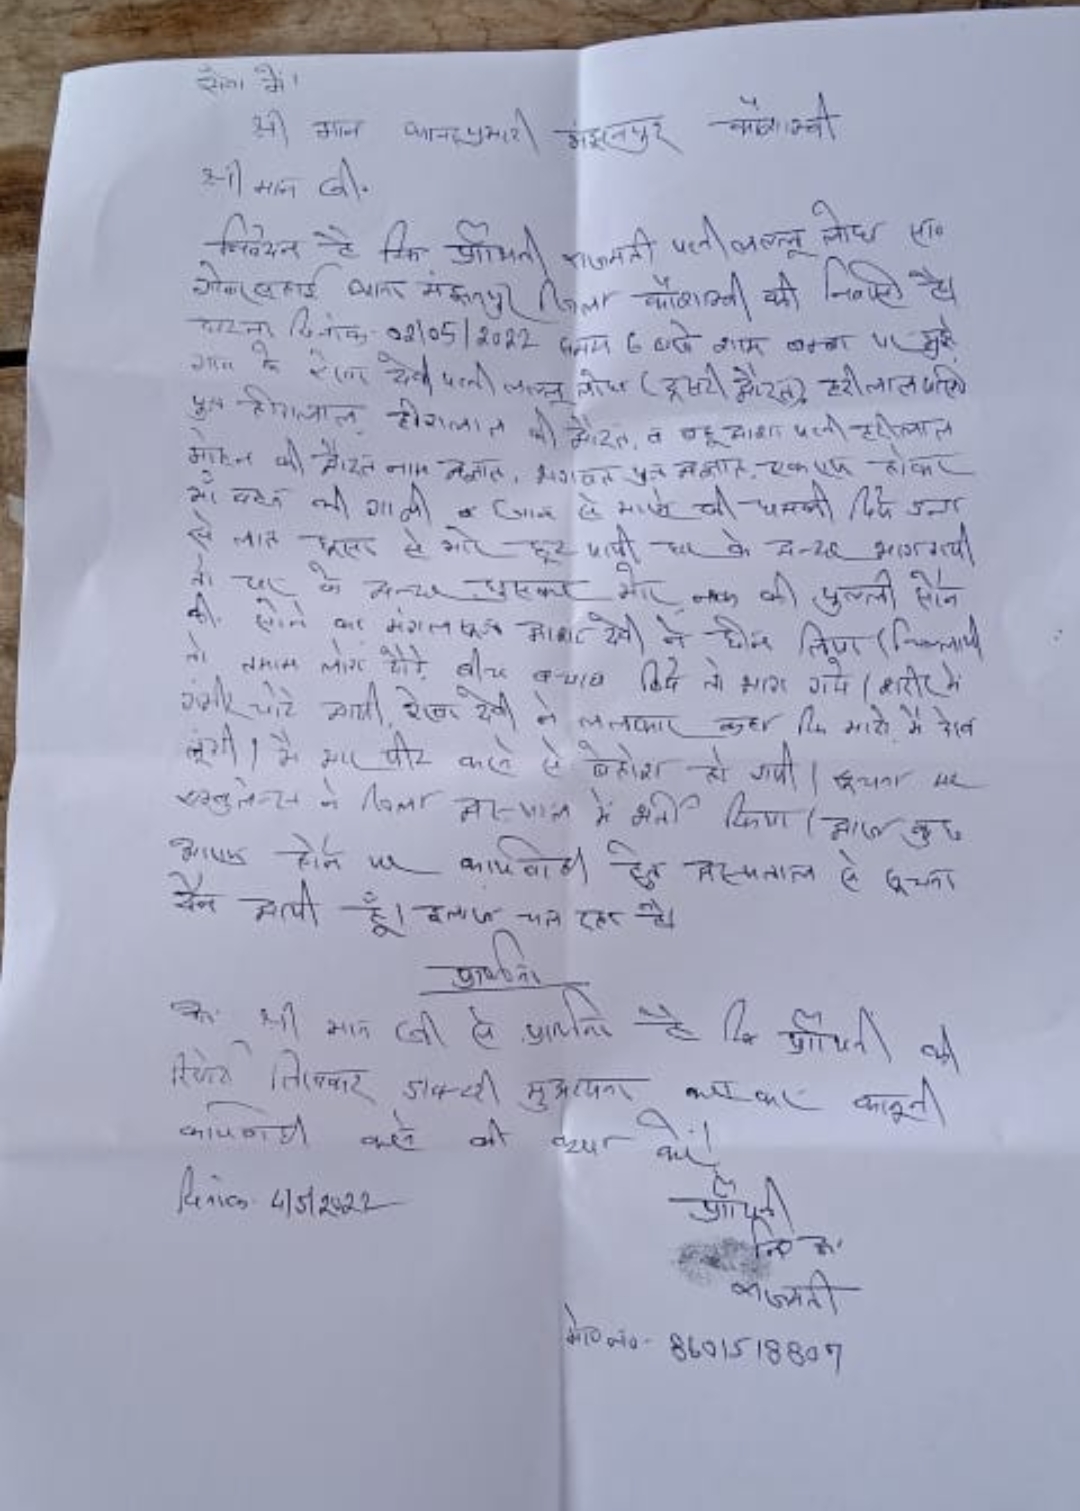 सेवा में।
श्री मान थाना प्रभारी मंझनपुर कौशाम्बी
श्री मान जी.
निवेदन है कि प्रार्थिनी राजमती पत्नी लल्लू लोध सा०
थाना मंझनपुर जिला कौशाम्बी की निवासी है।
घटना दिनांक- 02/05/2022 समय 6 बजे शाम पर मुझे
गांव के रेखा देवी पत्नी लल्लू लोध (दूसरी औरत), हरीलाल
पुत्र हीरालाल, हीरालाल की औरत, व बहू आशा पत्नी हरीलाल
मोहन की औरत नाम अज्ञात, भगवत पुत्र अज्ञात, एक राय होकर
माँ बहन की गाली व जान से मारने की धमकी दिये
से लात घूसा से मारे छूट पायी घर के अन्दर भाग गयी
तो घर के अन्दर घुसकर मारे, नाक की फुल्ली सोने
की. सोने का मंगलसूत्र आशा देवी ने छीन लिया। चिल्लायी
तो तमाम लोग दौड़े बीच बचाव किये तो भाग गये। शरीर में
गंभीर चोटे आयी, रेखा देवी ने ललकार कहा कि मारो, मै देख
लूंगी। मै मार पीट करने से बेहोश हो गयी। सूचना पर
एम्बुलेन्स ने जिला अस्पताल में भर्ती किया। आज कुछ
आराम होने पर कार्यवाही हेतु अस्पताल से सूचना
देने आयी हूँ। इलाज चल रहा है।
प्रार्थना
श्री मान जी से प्रार्थना है कि प्रार्थिनी की
रिपोर्ट लिखकर डाक्टरी मुआयना कराकर कानूनी
कार्यवाही करने की कृपा करें।
दिनांक- 4/5/2022
प्रार्थिनी
नि० अं.
राजमती
मो० नं०- 8601518807